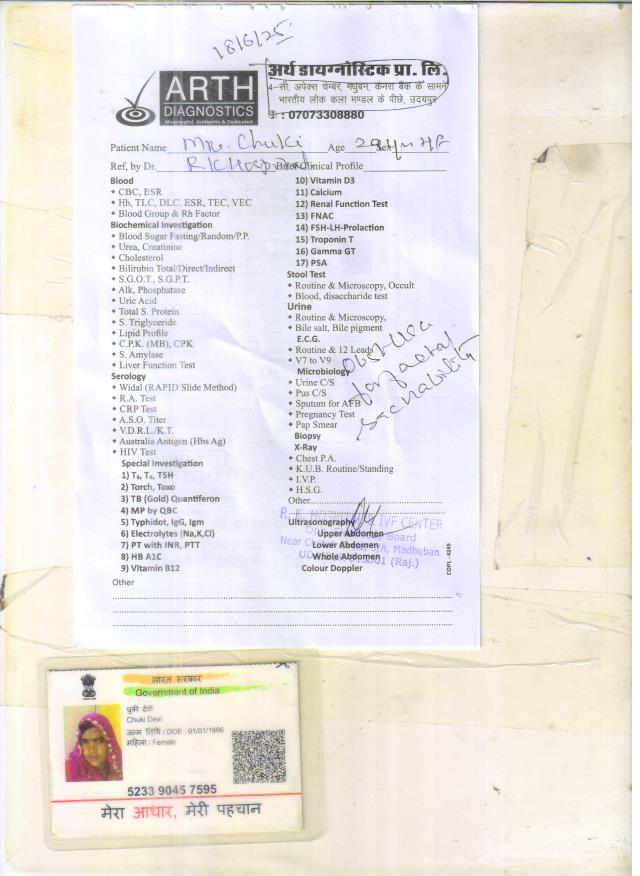 18/6/25
ARTH
DIAGNOSTICS
Meaningful, Authentic & Dedicated
अर्थ डायग्नोस्टिक प्रा. लि.
4-सी, अपेक्स चेम्बर, मधुबन, केनरा बैंक के सामने
भारतीय लोक कला मण्डल के पीछे, उदयपुर
: 07073308880
Patient Name Mrs. Chuki Age 29 yr Sex F
Ref, by Dr. R K Hospital Brief Clinical Profile
Blood
CBC, ESR
Hb, TLC, DLC, ESR, TEC, VEC
Blood Group & Rh Factor
Biochemical Investigation
Blood Sugar Fasting/Random/P.P.
Urea, Creatinine
Cholesterol
Bilirubin Total/Direct/Indirect
S.G.O.T., S.G.P.T.
Alk, Phosphatase
Uric Acid
Total S. Protein
S. Triglyceride
Lipid Profile
C.P.K. (MB), CPK
S. Amylase
Liver Function Test
Serology
Widal (RAPID Slide Method)
R.A. Test
CRP Test
A.S.O. Titer
V.D.R.L./K.T.
Australia Antigen (Hbs Ag)
HIV Test
Special Investigation
1) T₃, T₄, TSH
2) Torch, Toxo
3) TB (Gold) Quantiferon
4) MP by QBC
5) Typhidot, IgG, Igm
6) Electrolytes (Na,K,Cl)
7) PT with INR, PTT
8) HB A1C
9) Vitamin B12
Other
10) Vitamin D3
11) Calcium
12) Renal Function Test
13) FNAC
14) FSH-LH-Prolaction
15) Troponin T
16) Gamma GT
17) PSA
Stool Test
Routine & Microscopy, Occult
Blood, disaccharide test
Urine
Routine & Microscopy,
Bile salt, Bile pigment
E.C.G.
Routine & 12 Leads
V7 to V9
Microbiology
Urine C/S
Pus C/S
Sputum for AFB
Pregnancy Test
Pap Smear
Biopsy
X-Ray
Chest P.A.
K.U.B. Routine/Standing
I.V.P.
H.S.G.
Other
Ultrasonography
Upper Abdomen
Lower Abdomen
Whole Abdomen
Colour Doppler
for
IVF CENTER
Board
Madhuban
(Raj.)
COPL-4249
भारत सरकार
Government of India
चुकी देवी
Chuki Devi
जन्म तिथि / DOB : 01/01/1996
महिला / Female
5233 9045 7595
मेरा आधार, मेरी पहचान